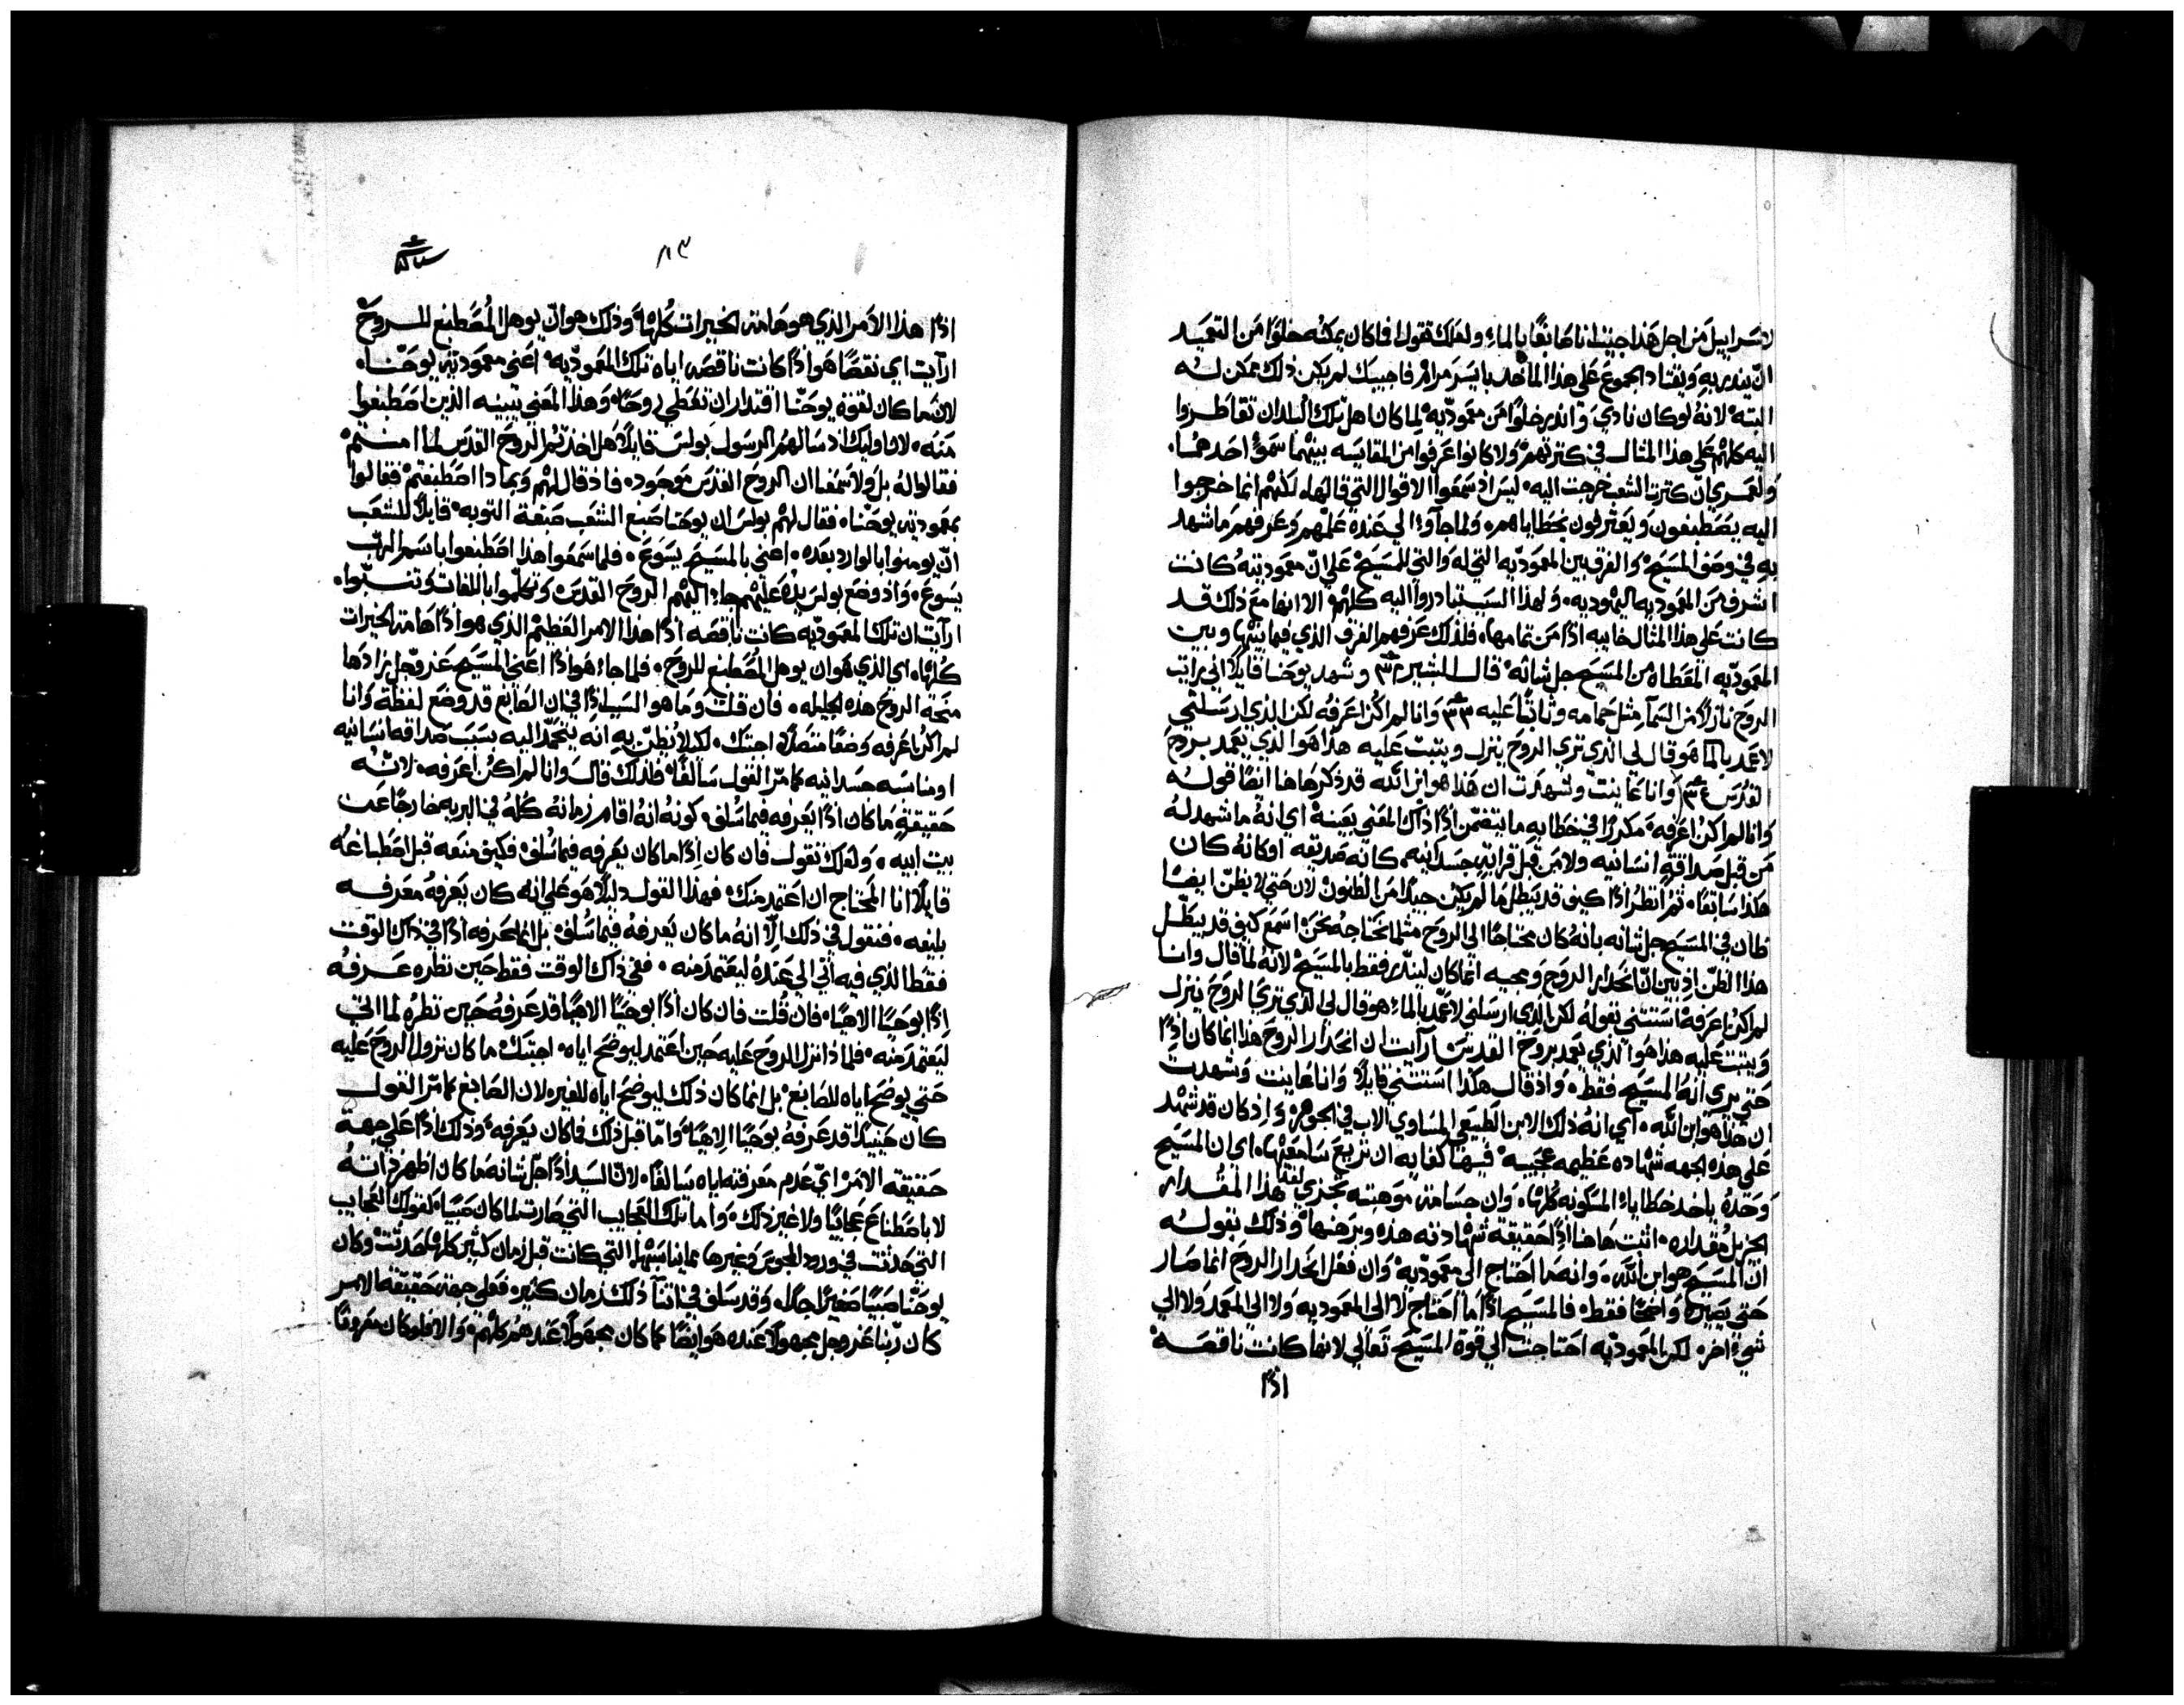 لاسراييل من اجل هذا جيت انا صابغًا بالماء ولعلك تقول افما كان يمكنه خلوًا من التعميد
ان ينذر به ويقتاد الجموع على هذا الماخد بايسر مرام فاجيبك لم يكن ذلك ممكن له
البته لانه لو كان نادي وانذر خلوًا من معموديه لما كان اهل تلك البلدان تقاطروا
اليه كلهم على هذا المثال في كترتهم ولا كانوا عرفوا من المقايسه بينهما سمو احدهما
ولعمري ان كترت الشعب خرجت اليه ليس اذ سمعوا الاقوال التي قالها لكنهم انما خرجوا
اليه يصطبغون ويعترفون بخطاياهم ولما جاوا الي عنده علمهم وعرفهم ما شهد
به في وصف المسيح والفرق بين المعموديه التي له والتي للمسيح على ان معموديته كانت
اشرف من المعموديه اليهوديه ولهذا السبب تبادروا اليه كلهم الا انها مع ذلك قد
كانت على هذا المثال خايبه اذًا من تمامها فلذلك عرفهم الفرق الذي فيما بينها وبين
المعموديه المعطاه من المسيح جل شانه قال البشير وشهد يوحنا قايلًا اني رايت
الروح نازلًا من السما مثل حمامه وثابتًا عليه وانا لم اكن اعرفه لكن الذي ارسلني
لاعمد بالما هو قال لي الذي تري الروح ينزل ويتبت عليه هذا هو الذي يعمد بروح
القدس وانا عاينت وشهدت ان هذا هو ابن الله قد ذكرها هنا ايضًا قوله
وانا لم اكن اعرفه مكررًا في خطابه ما يتضمن اذًا ذاك المعني بعينه اي انه ما شهد له
من قبل صداقة انسانيه ولا من قبل قرابة جسدانيه كانه صديقه اوكانه كان
هكذا سابقًا ثم انظر اذًا كيف قد يبطل ما لم يكن جيدًا من الظنون لان حتي لا يظن ايضًا
ظان في المسيح جل شانه بانه كان محتاجًا الي الروح مثلما نحتاجه نحن اسمع كيف قد يبطل
هذا الظن اذ يبين ان انحدار الروح ومجيه انما كان لينذر فقط بالمسيح لانه لما قال وانا
لم اكن اعرفه استتني بقوله لكن الذي ارسلني لاعمد بالماء هو قال لي الذي تري الروح ينزل
ويتبت عليه هذا هو الذي يعمد بروح القدس ارآيت ان انحدار الروح هذا انما كان اذًا
حتي يري انه المسيح فقط واذ قال هكذا استتني قايلًا وانا عاينت وشهدت
ان هذا هو ابن الله اي انه ذلك الابن الطبيعي المساوي الاب في الجوهر واذ كان قد شهد
على هذه الجهه شهاده عظيمه عجيبه فيها كفايه ان تريع سامعيها اي ان المسيح
وحده ياخد خطايا المسكونه كلها وان جسامة موهبته تجزي لفدا هذا المقدار
الجزيل مقداره اتبت هاهنا اذًا حقيقة شهادته هذه وبرهنها وذلك بقوله
ان المسيح هو ابن الله وانه ما احتاج الي معموديه وان فعل انحدار الروح انما صار
حتي يصيره واضحًا فقط فالمسيح اذًا ما احتاج لا الي المعموديه ولا الي المعمد ولا الي
شيء اخر لكن المعموديه احتاجت الي قوة المسيح تعالي لانها كانت ناقصه
اذًا
٨٣
اذًا هذا الامر الذي هو هامة الخيرات كلها وذلك هو ان يوهل المصطبغ للروح
ارآيت اي نقصًا هو اذًا كانت ناقصه اياه تلك المعموديه اعني معمودية يوحنا
لان ما كان لقوة يوحنا اقتدار ان تعطي روحًا وهذا المعني تبينه الذين اصطبغوا
منه لان اوليك اذ سالهم الرسول بولس قايلًا هل اخذتم الروح القدس لما امنتم
فقالوا له بل ولا سمعنا ان الروح القدس موجود فاذ قال لهم وبماذا اصطبغتم فقالوا
بمعمودية يوحنا فقال لهم بولس ان يوحنا صبغ الشعب صبغة التوبه قايلًا للشعب
ان يومنوا بالوارد بعده اعني بالمسيح يسوع فلما سمعوا هذا اصطبغوا باسم الرب
يسوع واذ وضع بولس يده عليهم جا اليهم الروح القدس وتكلموا باللغات وتنبوا
ارآيت ان تلك المعموديه كانت ناقصه اذًا هذا الامر العظيم الذي هو اذًا هامة الخيرات
كلها اي الذي هو ان يوهل المصطبغ للروح فلما جاء هو اذًا اعني المسيح عز وجل زادها
منحة الروح هذه الجليله فان قلت وما هو السبب اذًا في ان الصابغ قد وضع لفظة وانا
لم اكن اعرفه وضعًا متصلًا اجبتك لكيلا يظن به انه ينحمد اليه بسبب صداقه انسانيه
او مناسبه جسدانيه كما مر القول سالفًا فلذلك قال وانا لم اكن اعرفه لانه
حقيقةً ما كان اذًا يعرفه فيما سلف كونه انه اقام زمانه كله في البريه خارجًا عن
بيت ابيه ولعلك تقول فان كان اذًا ما كان يعرفه فيما سلف فكيف منعه قبل اصطباغه
قايلًا انا المحتاج ان اعتمد منك فهذا القول دليلًا هو علي انه كان يعرفه معرفه
بليغه فنقول في ذلك الا انه ما كان يعرفه فيما سلف بل انما عرفه اذًا في ذاك الوقت
فقط الذي فيه اتي الي عنده ليعتمد منه ففي ذاك الوقت فقط حين نظره عرفه
اذًا بوحيًا الاهيًا فان قلت فان كان اذًا بوحيًا الاهيًا قد عرفه حين نظره لما اتي
ليعتمد منه فلماذا نزل الروح عليه حين اعتمد ليوضح اياه اجبتك ما كان نزول الروح عليه
حتي يوضح اياه للصابغ بل انما كان ذلك ليوضح اياه للغير لان الصابغ كما مر القول
كان حينيذٍ قد عرفه بوحيًا الاهيًا واما قبل ذلك فما كان يعرفه وذلك اذًا علي جهة
حقيقة الامر اي عدم معرفته اياه سالفًا لان السيد اذًا جل شانه ما كان اظهر ذاته
لا باصطناع عجايبًا ولا غير ذلك واما تلك العجايب التي صارت لما كان صبيًا كقولك العجايب
التي حدثت في ورود المجوس وغيرها مما يناسبها التي كانت قبل زمان كثير كلها حدثت وكان
يوحنا صبيًا صغيرًا جدًا وقد سلف في اتنآ ذلك زمان كثير فعلي جهة حقيقة الامر
كان ربنا عز وجل مجهولًا عنده هو ايضًا كما كان مجهولًا عندهم كلهم والا فلو كان معروفًا